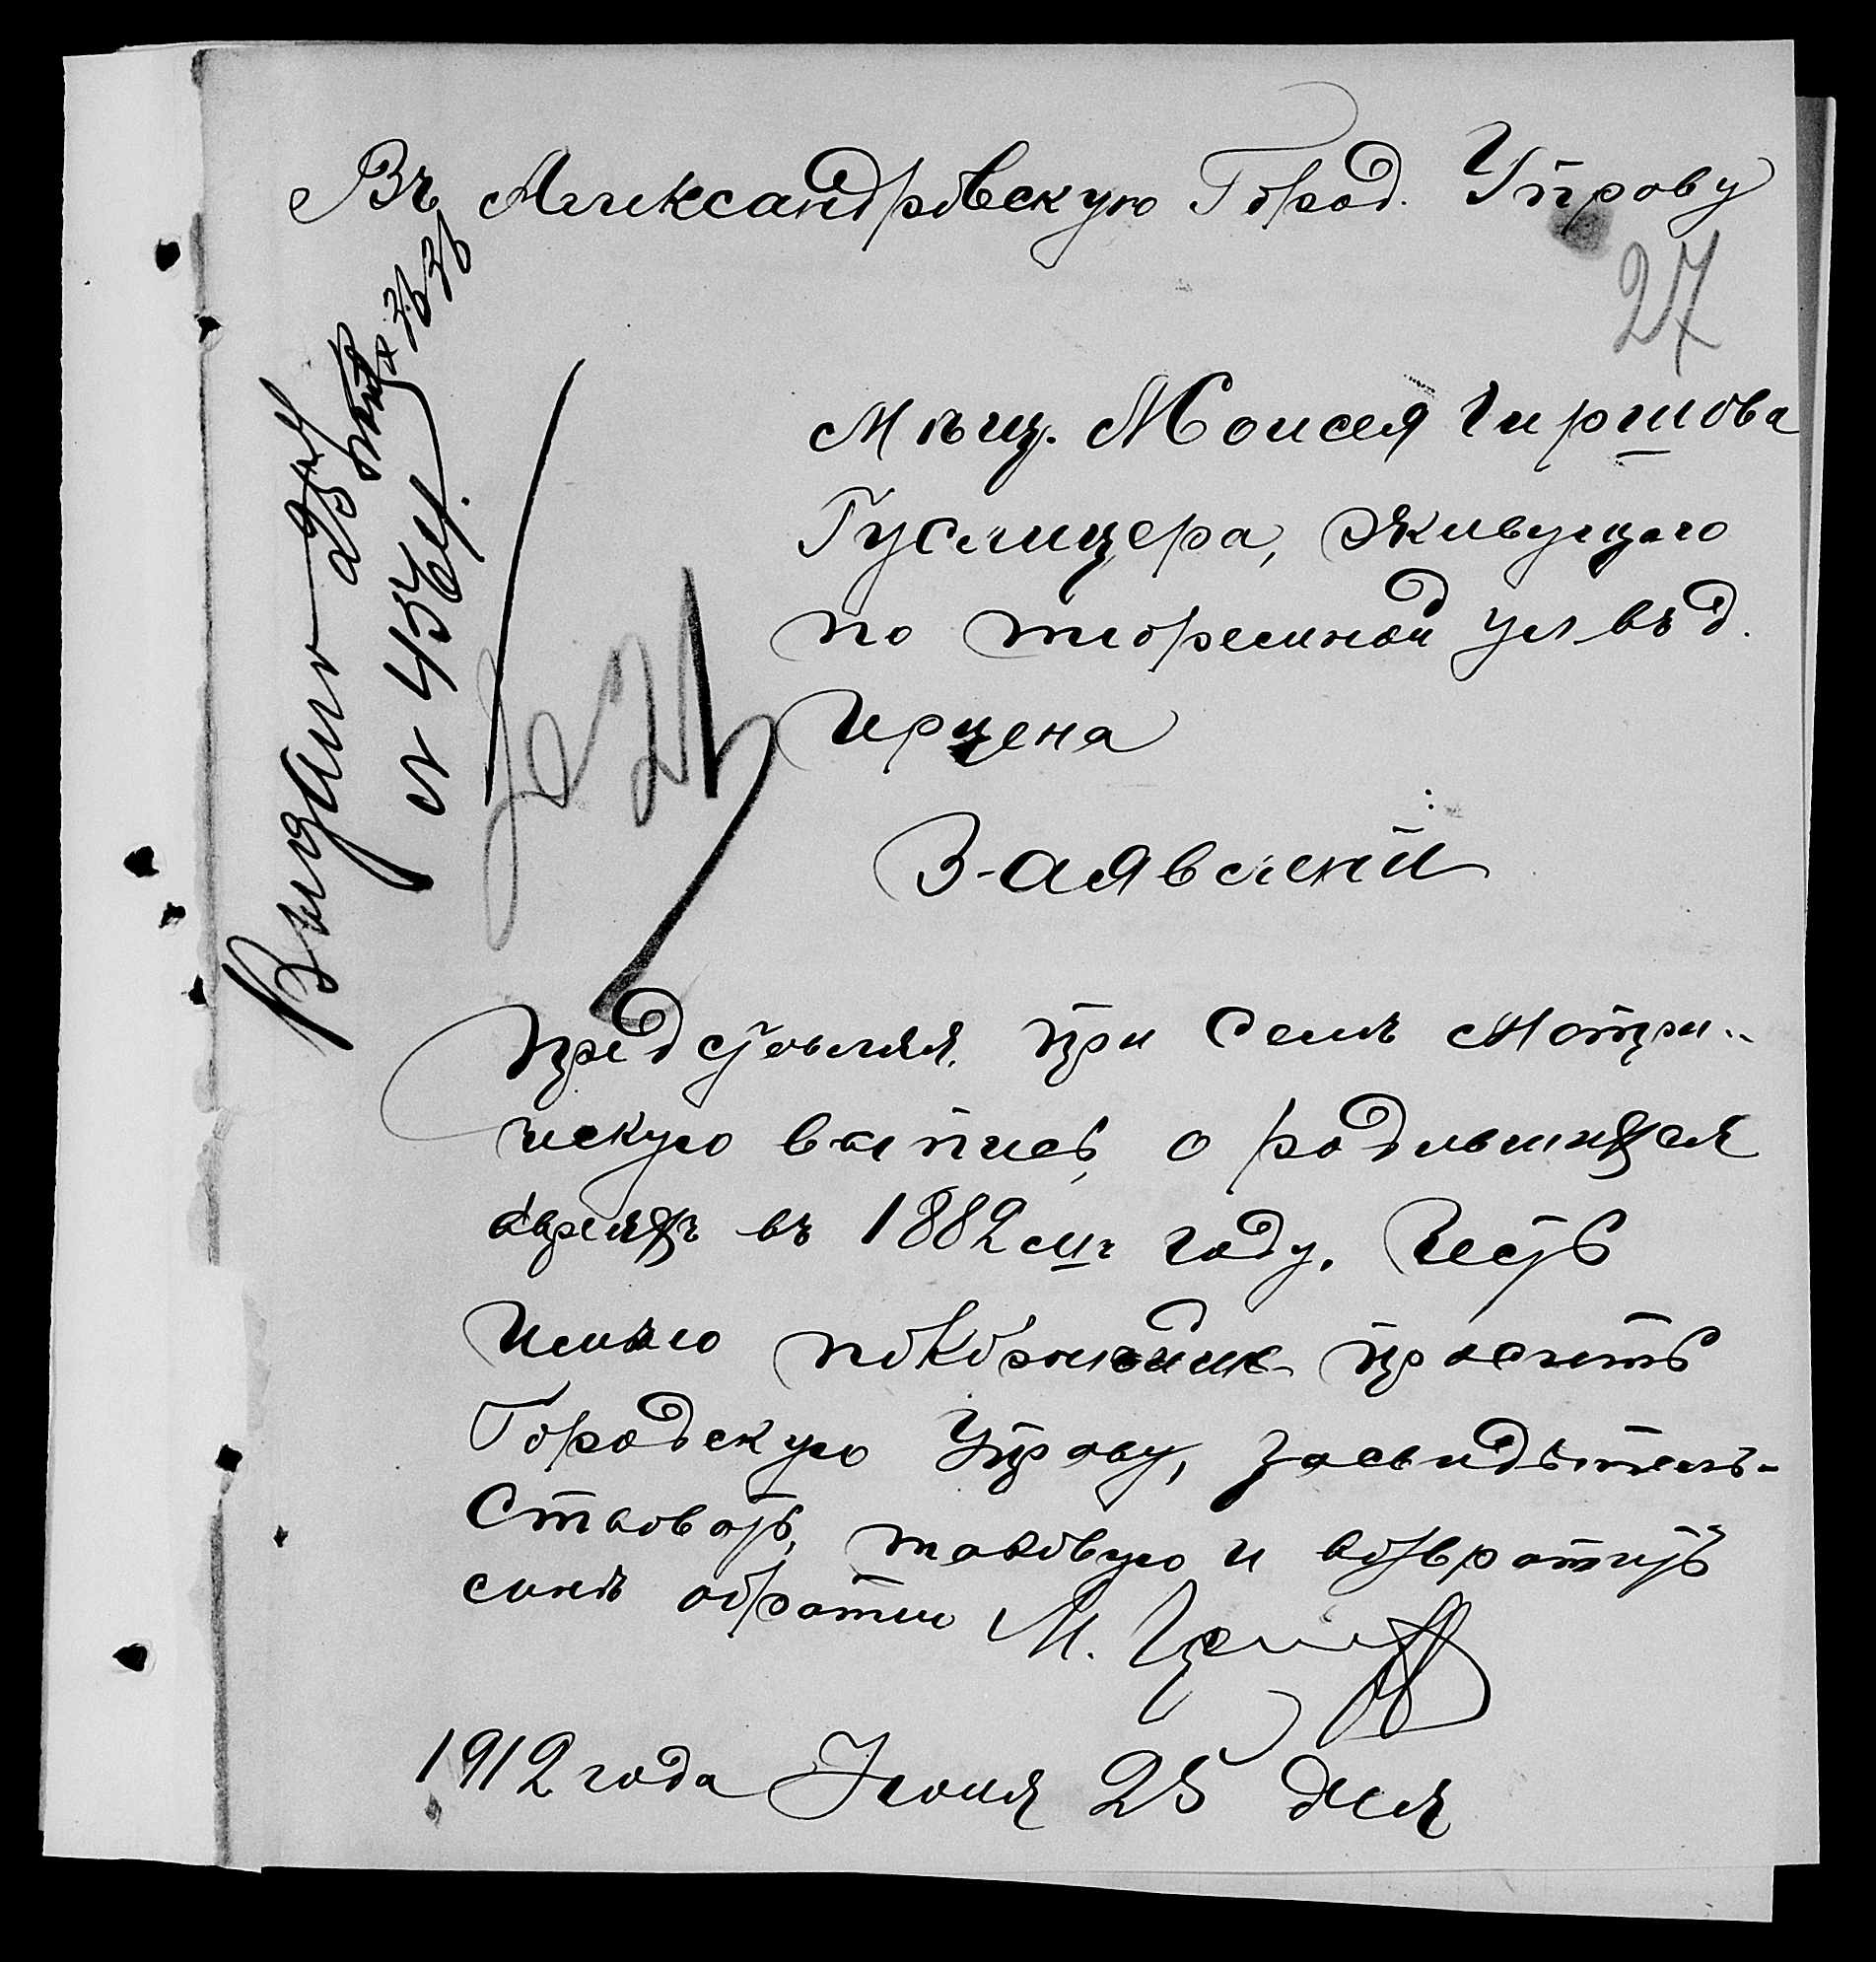 Въ Александровскую Город. Управу
27
Мѣщ. Моисея Гиршова
Гуслицера, живущаго
по тюремной ул въ д.
Ирцена
Заявленій
Представляя при семъ Метри-
ческую выпись о родившихся
евреяхъ въ 1882мъ году. Честь
имѣю покорнейше просить
Городскую Управу, засвидѣтель-
ствовать таковую и возвратить
мнѣ обратно М.
1912 года Іюня 25 дня
Выдано
№ 4564.